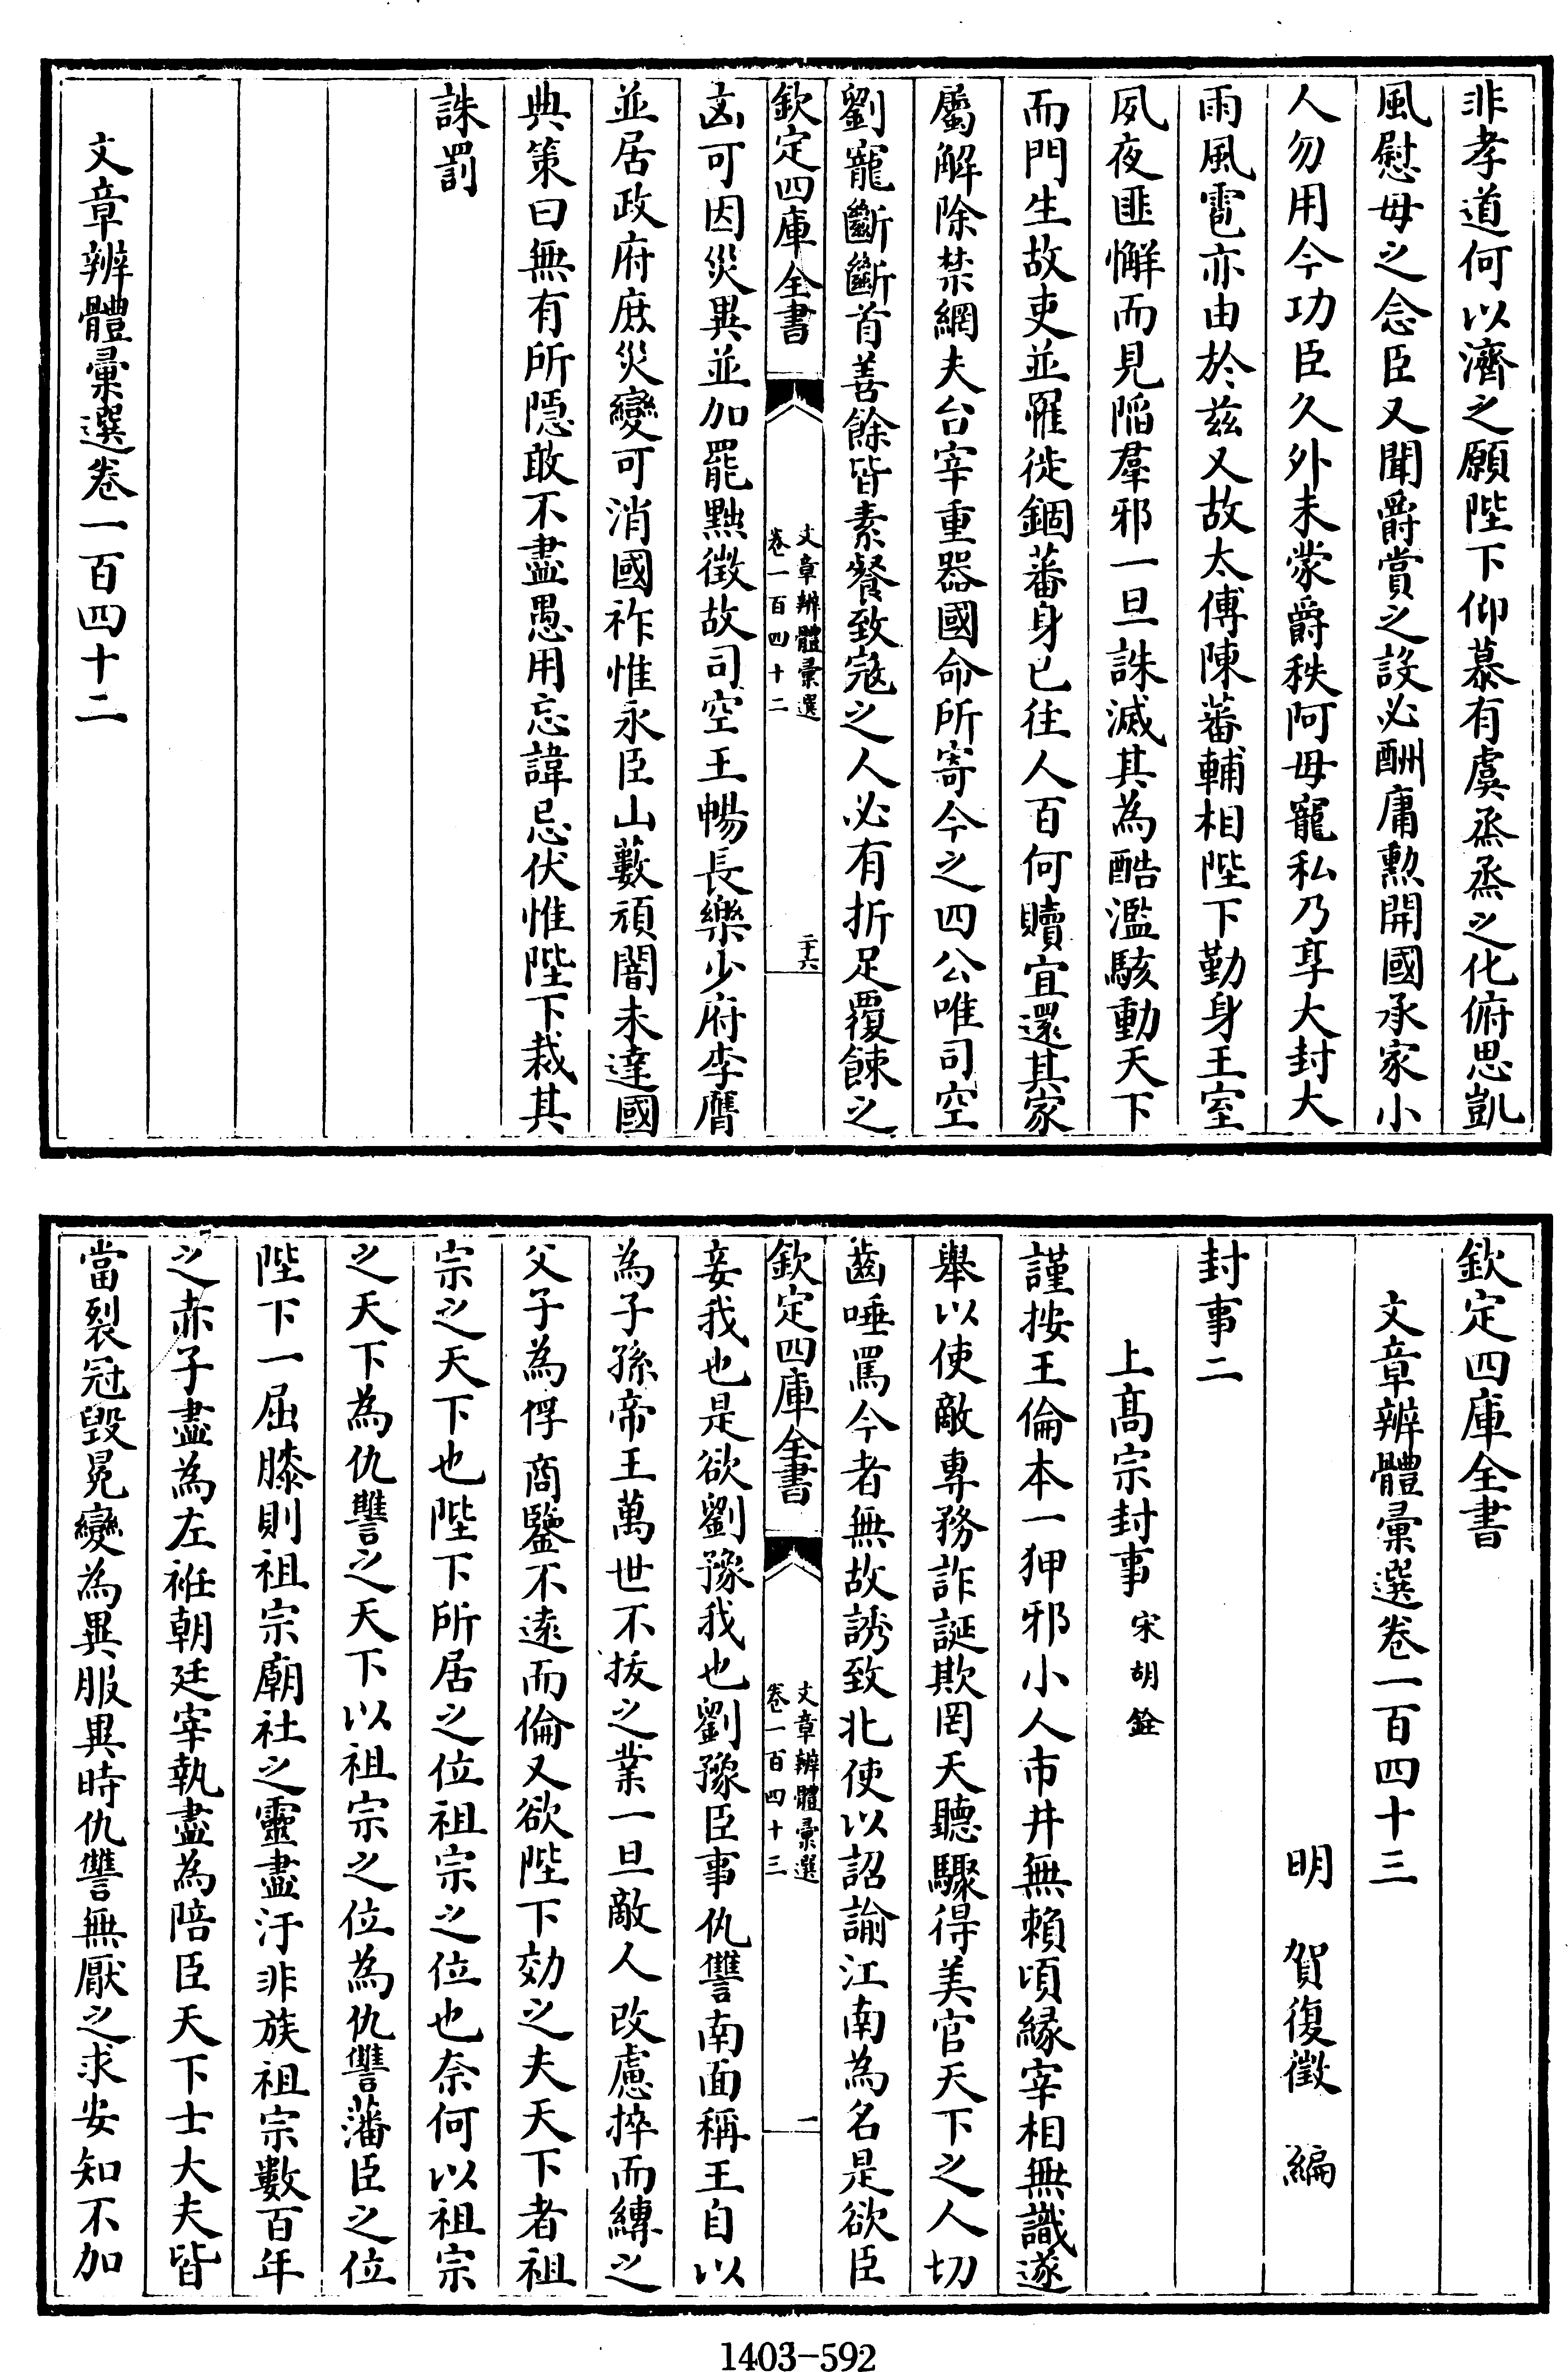 非孝道何以濟之願陛下仰慕有虞烝烝之化俯思凱
風慰母之念臣又聞爵賞之設必酬庸勲開國承家小
人勿用今功臣久外未蒙爵秩阿母寵私乃享大封大
雨風雹亦由於兹又故太傅陳蕃輔相陛下勤身王室
夙夜匪懈而見陷羣邪一旦誅滅其為酷濫駭動天下
而門生故吏並罹徙錮蕃身已往人百何贖宜還其家
屬解除禁網夫台宰重器國命所寄今之四公唯司空
劉寵斷斷首善餘皆素餐致寇之人必有折足覆餗之
欽定四庫全書
文章辨體彚選
卷一百四十二
二十六
凶可因災異並加罷黜徴故司空王暢長樂少府李膺
並居政府庶災變可消國祚惟永臣山藪頑闇未達國
典策曰無有所隱敢不盡愚用忘諱忌伏惟陛下裁其
誅罰
文章辨體彚選卷一百四十二
欽定四庫全書
文章辨體彚選卷一百四十三
明 賀復徵 編
封事二
上高宗封事 宋胡銓
謹按王倫本一狎邪小人市井無賴頃緣宰相無識遂
舉以使敵專務詐誕欺罔天聽驟得美官天下之人切
齒唾罵今者無故誘致北使以詔諭江南為名是欲臣
欽定四庫全書
文章辨體彚選
卷一百四十三
一
妾我也是欲劉豫我也劉豫臣事仇讐南面稱王自以
為子孫帝王萬世不拔之業一旦敵人改慮捽而縛之
父子為俘商鑒不逺而倫又欲陛下効之夫天下者祖
宗之天下也陛下所居之位祖宗之位也奈何以祖宗
之天下為仇讐之天下以祖宗之位為仇讐藩臣之位
陛下一屈膝則祖宗廟社之靈盡汙非族祖宗數百年
之赤子盡為左衽朝廷宰執盡為陪臣天下士大夫皆
當裂冠毁冕變為異服異時仇讐無厭之求安知不加
1403-592